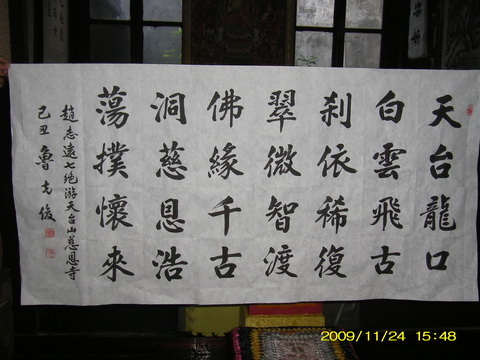 天台龍口
白雲飛古
刹依稀復
翠微智渡
佛緣千古
洞慈恩浩
蕩撲懷來
趙志遠七絕游天台山慈恩寺
己丑 魯
2009/11/24 15:48